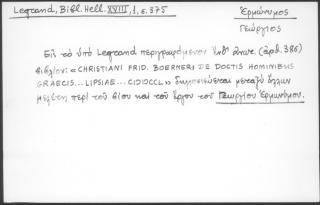 Legrand, Bibl. Hell. XVIII, 1, σ. 375
Ἑρμώνυμος
Γεώργιος
Εἰς τὸ ὑπὸ Legrand περιγραφόμενον ἐνθ' ἀνωτ. (ἀρθ. 386)
βιβλίον: «CHRISTIANI FRID. BOERNERI DE DOCTIS HOMINIBUS
GRAECIS... LIPSIAE... CIƆIƆCCL» δημοσιεύεται μεταξὺ ἄλλων
μελέτη περὶ τοῦ βίου καὶ τοῦ ἔργου τοῦ Γεωργίου Ἑρμωνύμου.